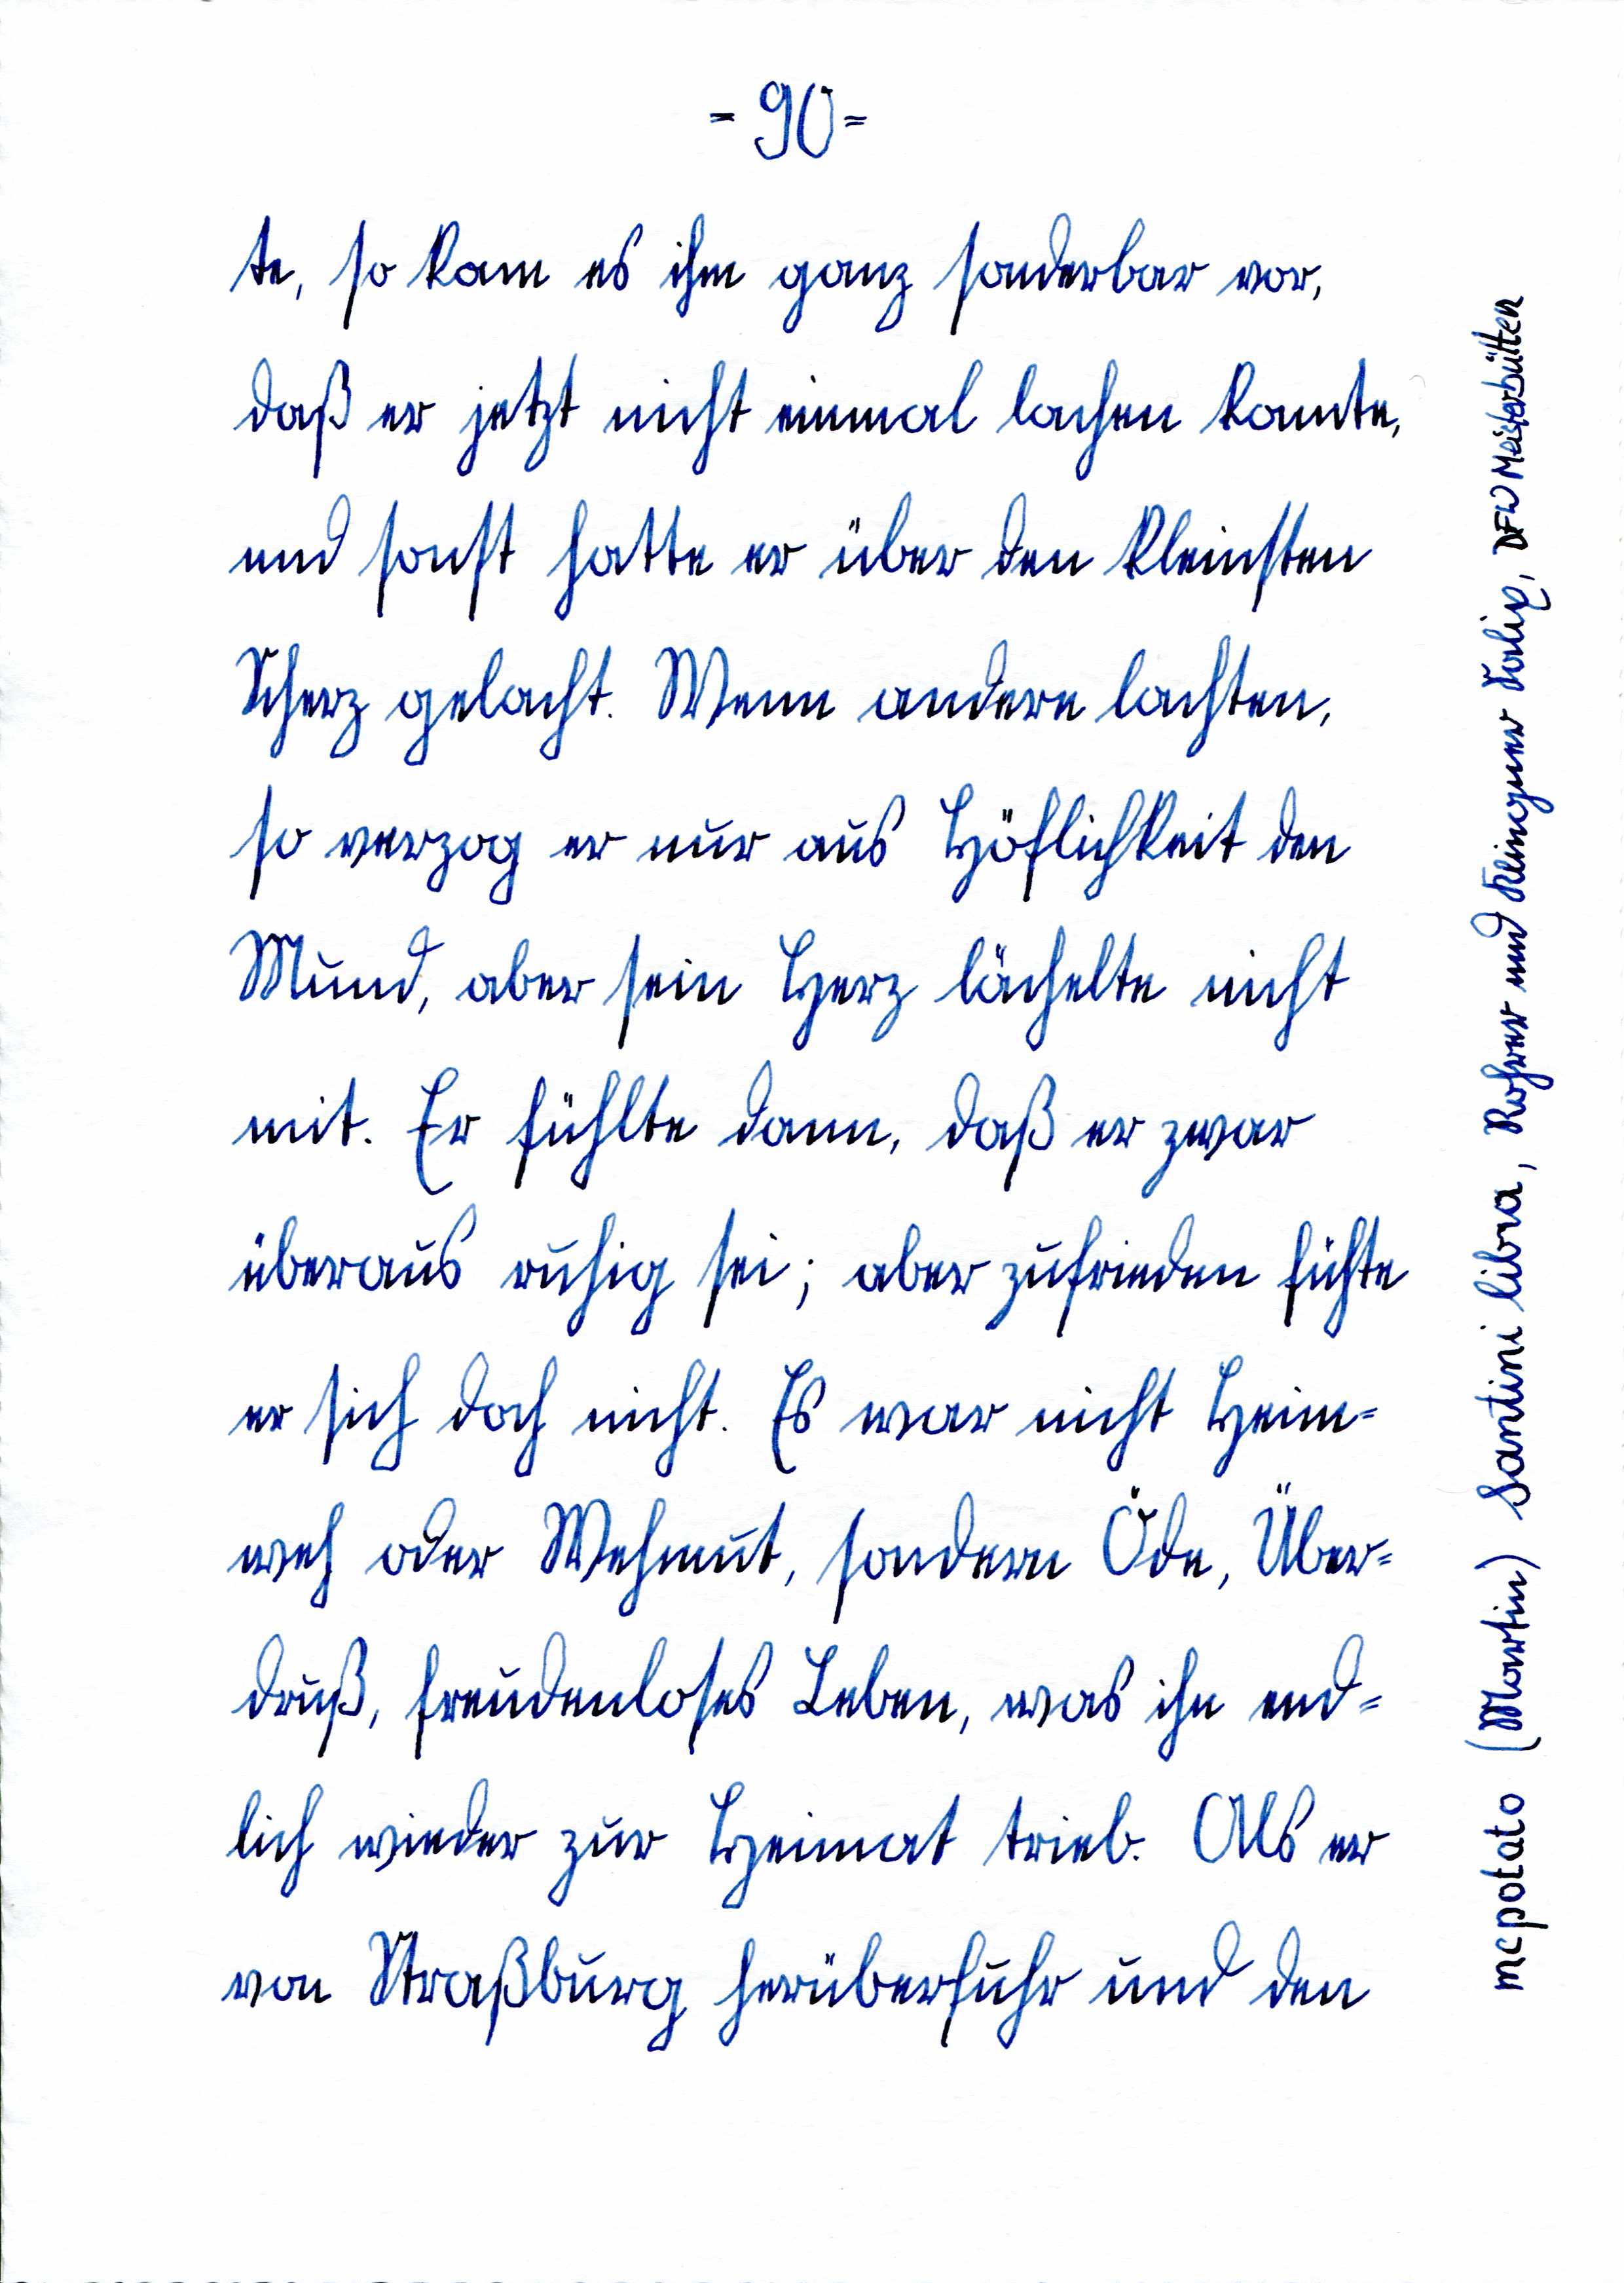 - 90 -
te, so kam es ihm ganz sonderbar vor,
daß er jetzt nicht einmal lachen konnte,
und sonst hatte er über den kleinsten
Scherz gelacht. Wenn andere lachten,
so verzog er nur aus Höflichkeit den
Mund, aber sein Herz lächelte nicht
mit. Er fühlte dann, daß er zwar
überaus ruhig sei; aber zufrieden fühte
er sich doch nicht. Es war nicht Heim-
weh oder Wehmut, sondern Öde, Über-
druß, freudenloses Leben, was ihn end-
lich wieder zur Heimat trieb. Als er
von Straßburg herüberfuhr und den
mcpotato (Martin) Santini libra, Rohrer und Klingner Salix, DFW Meisterbütten